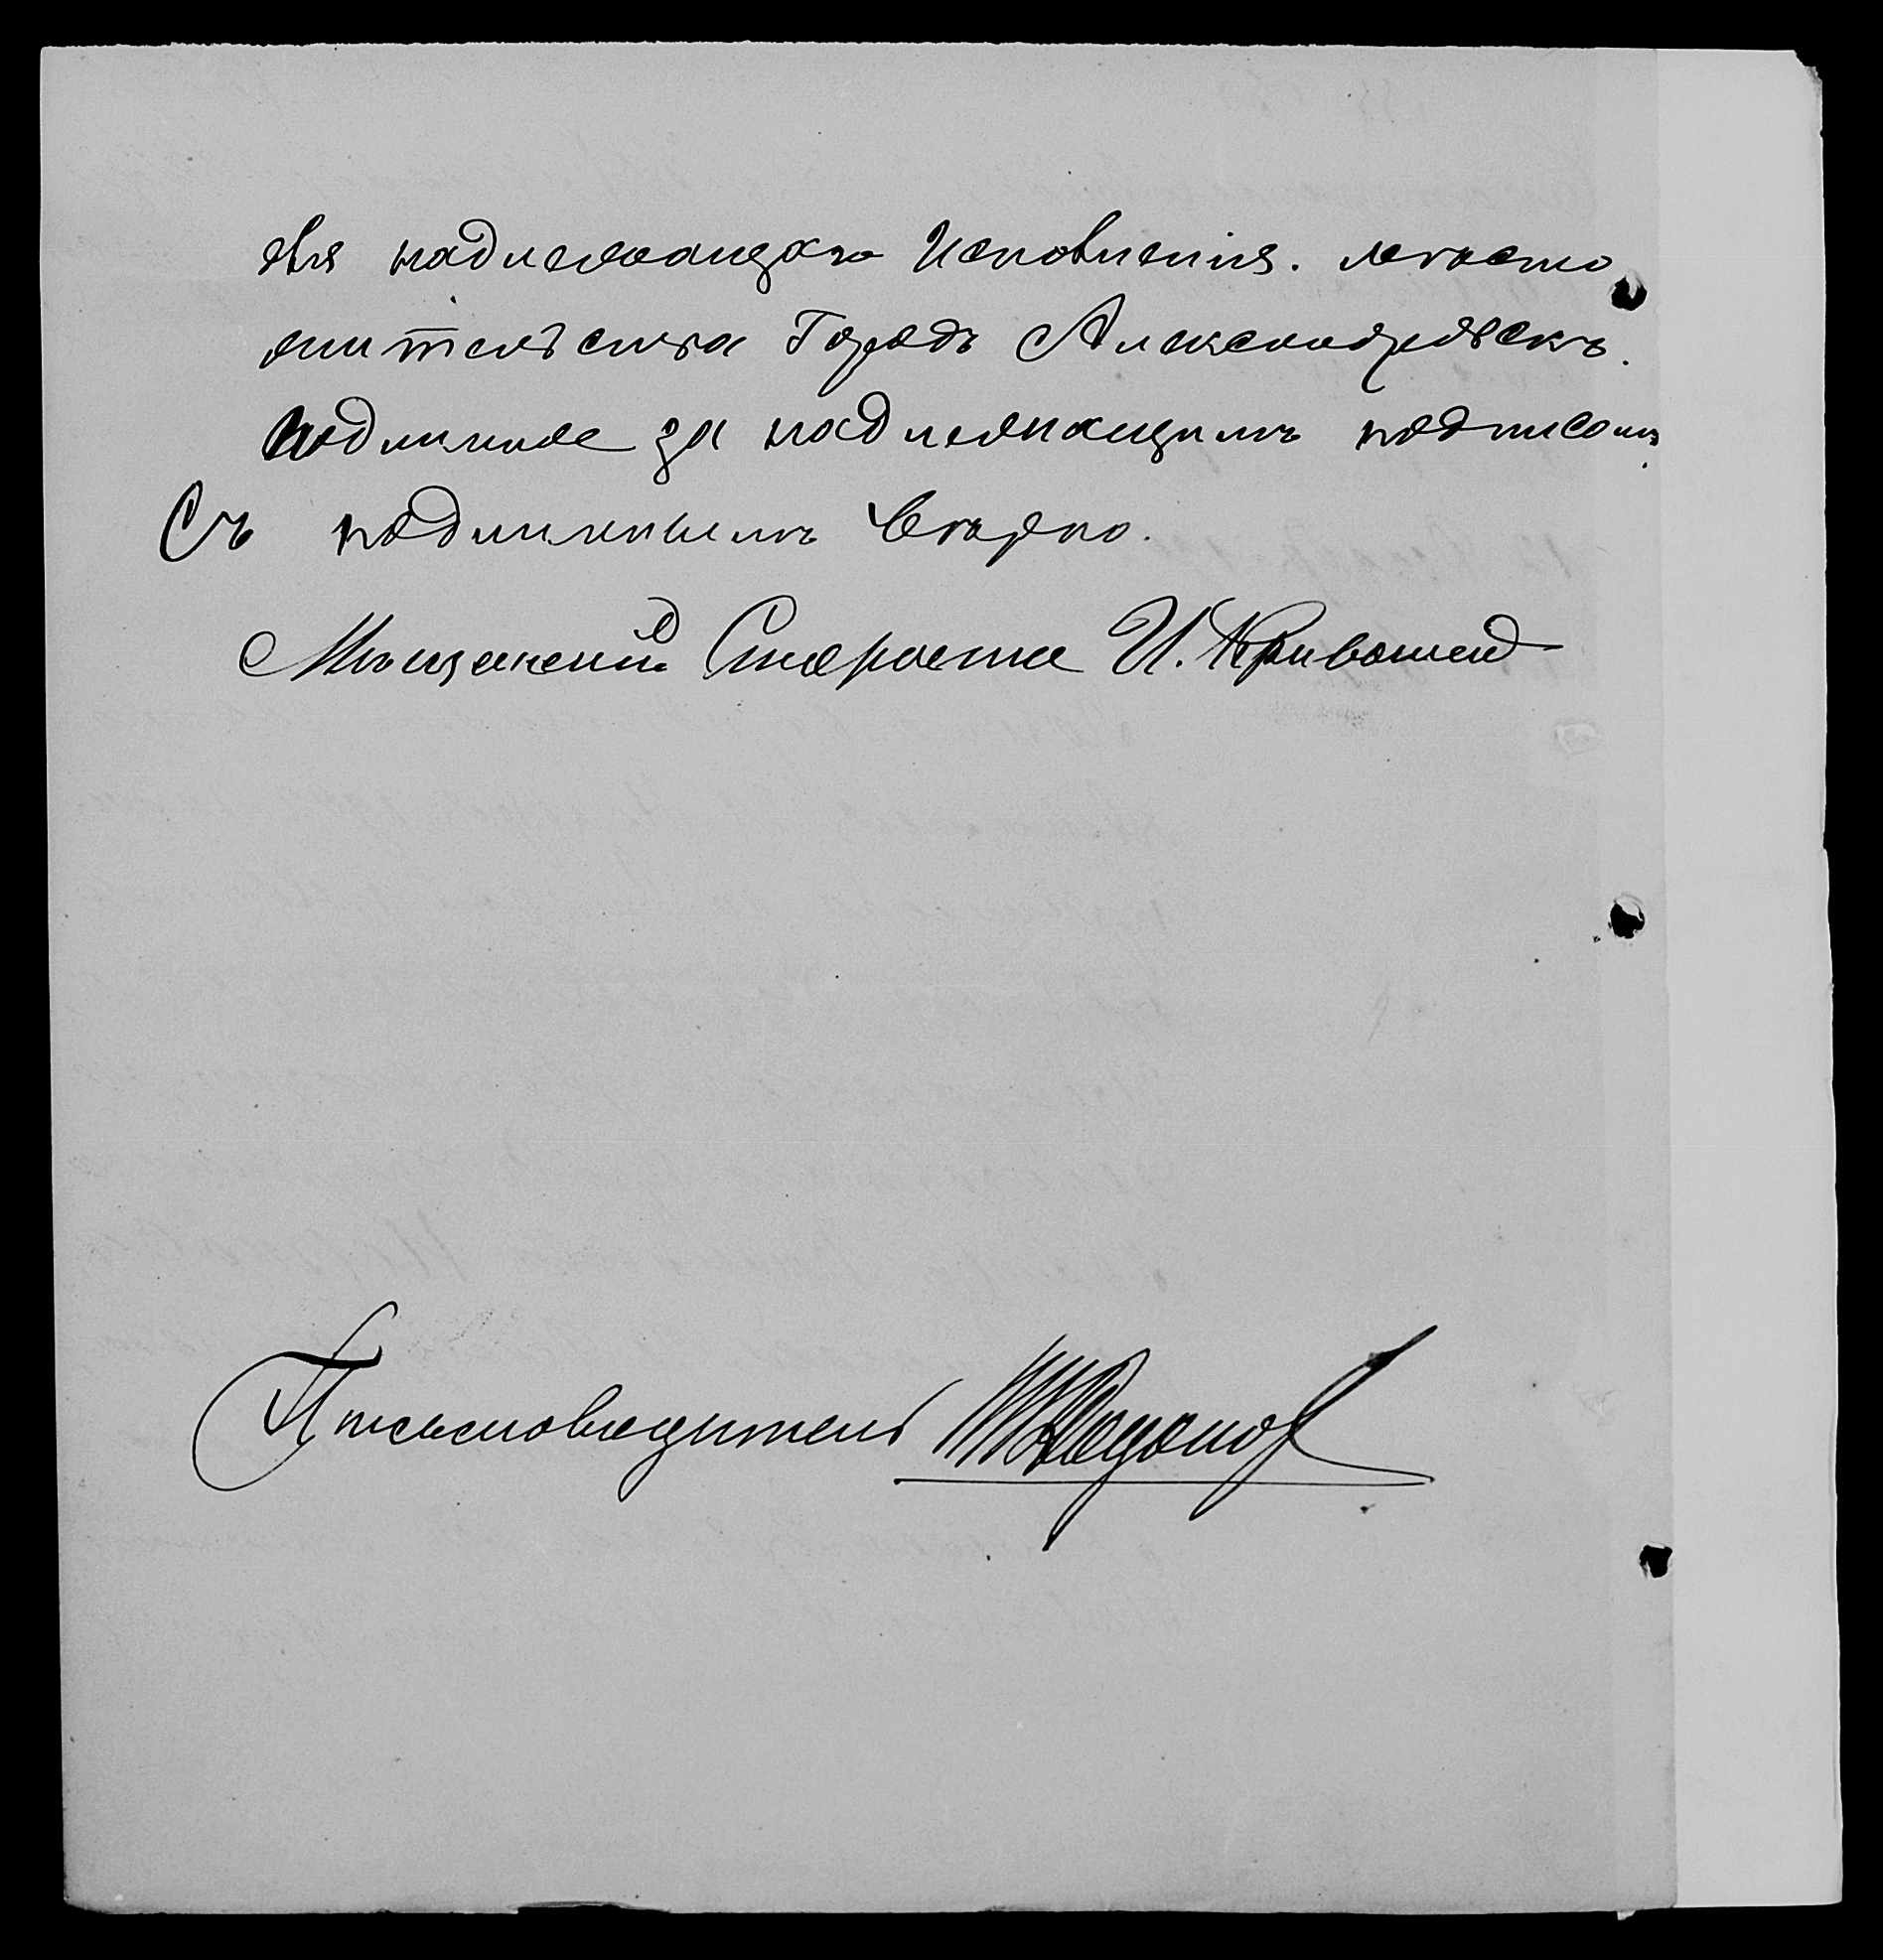 для надлежащаго Исполненія. мѣсто
жительства Городъ Александровскъ.
Подлинное за надлежащимъ подписомъ
Съ подлиннымъ Вѣрно.
Мѣщанскій Староста И. Кривошей
Письмоводитель